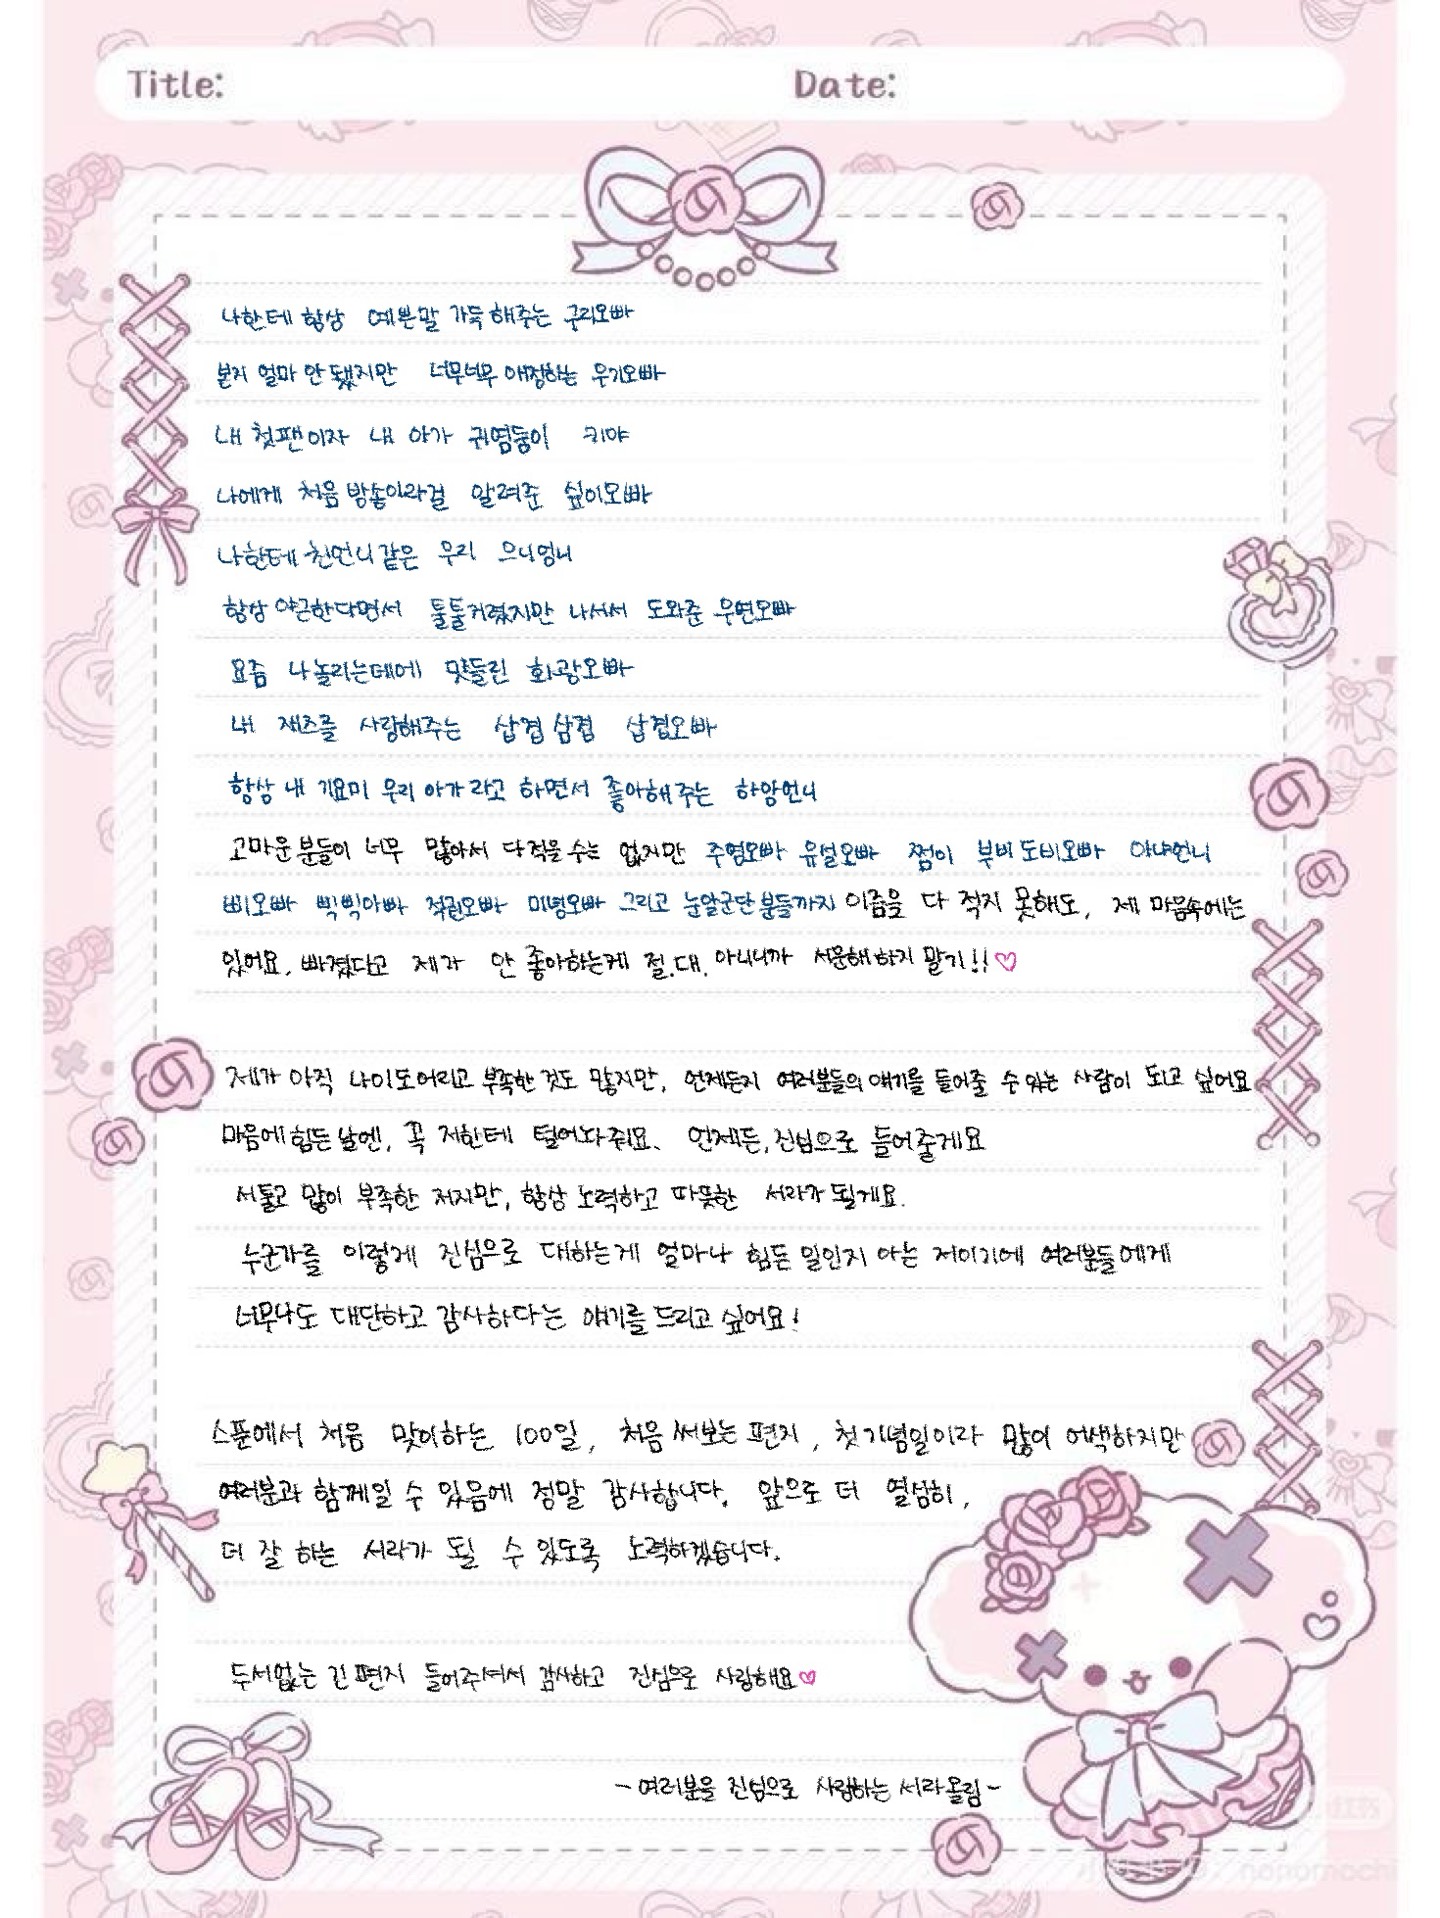 Title: Date:
나한테 항상 예쁜말 가득 해주는 구리오빠
본지 얼마 안 됐지만 너무너무 애정하는 우기오빠
내 첫팬이자 내 아가 귀염둥이 키야
나에게 처음 방송이라걸 알려준 싶이오빠
나한테 친언니같은 우리 으니엉니
항상 야근한다면서 툴툴거렸지만 나서서 도와준 우연오빠
요즘 나놀리는데에 맛들린 화광오빠
내 재즈를 사랑해주는 삽겹 삼겹 삽겹오빠
항상 내 기요미 우리 아가 라고 하면서 좋아해주는 하앙언니
고마운분들이 너무 많아서 다적을수는 없지만 주염오빠 유설오빠 쩜이 부비도비오빠 아냐언니
삐오빠 삑삑아빠 적권오빠 미녕오빠 그리고 눈알군단분들까지 이즘을 다 적지 못해도, 제 마음속에는
있어요. 빠졌다고 제가 안 좋아하는게 절.대. 아니니까 서운해하지 말기!!♡
제가 아직 나이도어리고 부족한 것도 많지만, 언제든지 여러분들의 얘기를 들어줄 수 있는 사람이 되고 싶어요
마음에 힘든 날엔, 꼭 저한테 털어놔줘요. 언제든, 진심으로 들어줄게요
서툴고 많이 부족한 저지만, 항상 노력하고 따뜻한 서라가 될게요.
누군가를 이렇게 진심으로 대하는게 얼마나 힘든 일인지 아는 저이기에 여러분들에게
너무나도 대단하고 감사하다는 얘기를 드리고 싶어요!
스푼에서 처음 맞이하는 100일, 처음 써보는 편지, 첫기념일이라 많이 어색하지만
여러분과 함께일 수 있음에 정말 감사합니다. 앞으로 더 열심히,
더 잘 하는 서라가 될 수 있도록 노력하겠습니다.
두서없는 긴 편지 들어주셔서 감사하고 진심으로 사랑해요♡
-여러분을 진심으로 사랑하는 서라올림-
nonomochi